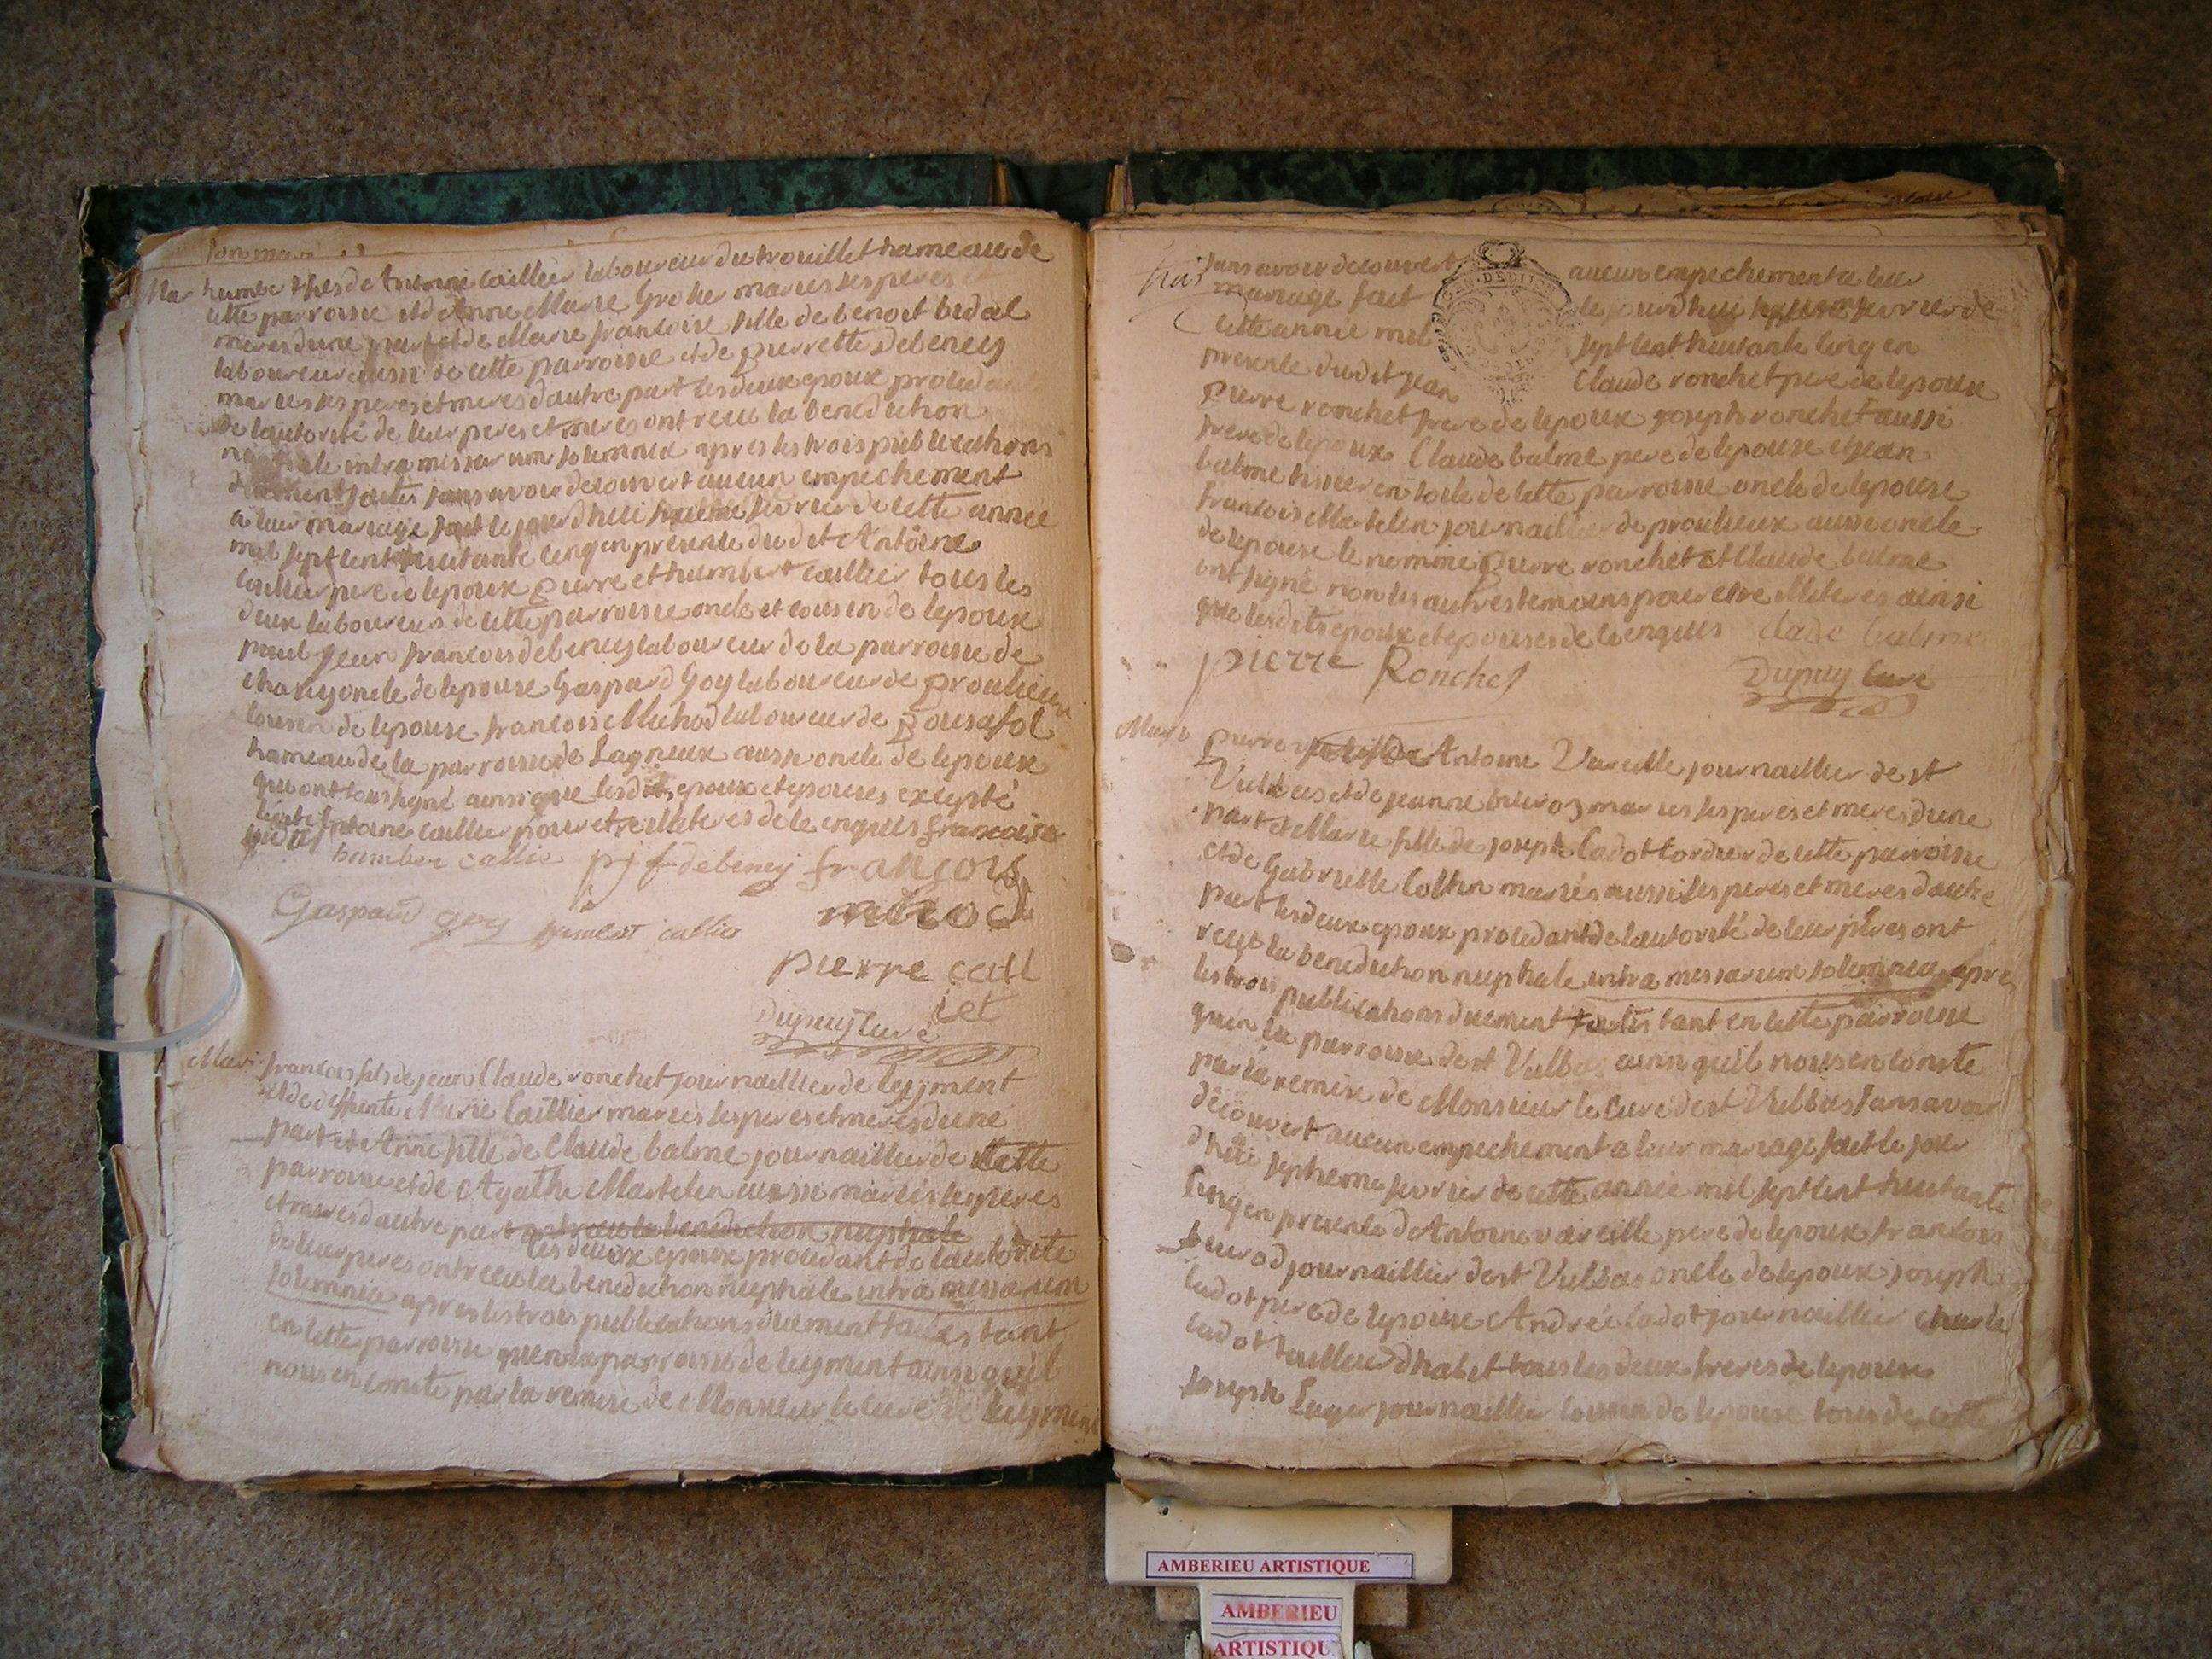 Mar humbert fils de Antoine caillier laboureur du trouillet hameau de
cette parroisse et de Anne Marie Grolier mariés ses peres et
meres d'une part et de Marie francoise fille de benoit bidal
laboureur aussi de cette parroisse et de pierrette Debeney
mariés ses peres et meres d'autre part les deux epoux procedant
de lautorité de leur peres et meres ont recu la benediction
nuptiale intra missarum solemnia apres les trois publications
duement faites sans avoir decouvert aucun empechement
a leur mariage fait le jourd'hui fevrier de cette année
mil sept cent huitante cinq en presence dudit Antoine
caillier pere de lepoux pierre et humbert caillier tous les
deux laboureurs de cette parroisse oncle et cousin de lepoux
paul jean francois debeney laboureur de la parroisse de
oncle de lepouse Gaspard Goy laboureur de proulieux
cousin de lepouse francois Michod laboureur de Posafol
hameau de la parroisse de Lagnieux aussi oncle de lepouse
qui ont tous signé ainsi que lesdits epoux et epouses excepté
Antoine caillier pour etre illiteres de ce enquis francoise
humber callie pjf debeney françois
Gaspard goy humber callie michod
pierre call
iet
Dupuy curé
Mari francois fils de jean Claude ronchet journaillier de leyment
et de deffunte Marie Caillier mariés ses peres et meres d'une
part et de Anne fille de Claude balme journaillier de cette
parroisse et de Agathe Martelin aussi mariés ses peres
et meres d'autre part ont recu la benediction nuptiale
les deux epoux procedant de lautorité
de leur peres ont recu la benediction nuptiale intra missarum
solemnia apres les trois publications duement faites tant
en cette parroisse qu'en la parroisse de leyment ainsi quil
nous en conste par la remise de Monsieur le Curé de leyment
sans avoir decouvert aucun empechement a leur
mariage fait le jourd'hui fevrier de
cette année mil sept cent huitante cinq en
presence dudit jean Claude ronchet pere de lepoux
pierre ronchet frere de lepoux joseph ronchet aussi
frere de lepoux Claude balme pere de lepouse et jean
balme tissier en toile de cette parroisse oncle de lepouse
francois Martelin journaillier de proulieux aussi oncle
de lepouse le nommé pierre ronchet et Claude balme
ont signé non les autres temoins pour etre illiteres ainsi
que lesdits epoux et epouses de ce enquis clade balme
pierre Ronchet Dupuy curé
Mari pierre fils de Antoine Vareille journaillier de st
Vulbas et de jeanne mariés ses peres et meres d'une
part et Marie fille de joseph Cadot cordier de cette parroisse
et de Gabrielle Collin mariés aussi ses peres et meres d'autre
part les deux epoux procedant de lautorité de leur peres ont
recu la benediction nuptiale intra missarum solemnia apres
les trois publications duement faites tant en cette parroisse
qu'en la parroisse de st Vulbas ainsi quil nous en conste
par la remise de Monsieur le Curé de st Vulbas sans avoir
découvert aucun empechement a leur mariage fait le jour
d'hui septieme fevrier de cette année mil sept cent huitante
cinq en presence de Antoine vareille pere de lepoux francois
journaillier de st Vulbas oncle de lepoux joseph
cadot pere de lepouse André Cadot journaillier charle
cadot tailleur d'habit tous les deux freres de lepouse
joseph Luger journaillier cousin de lepouse tous de cette
AMBERIEU ARTISTIQUE
AMBERIEU
ARTISTIQU